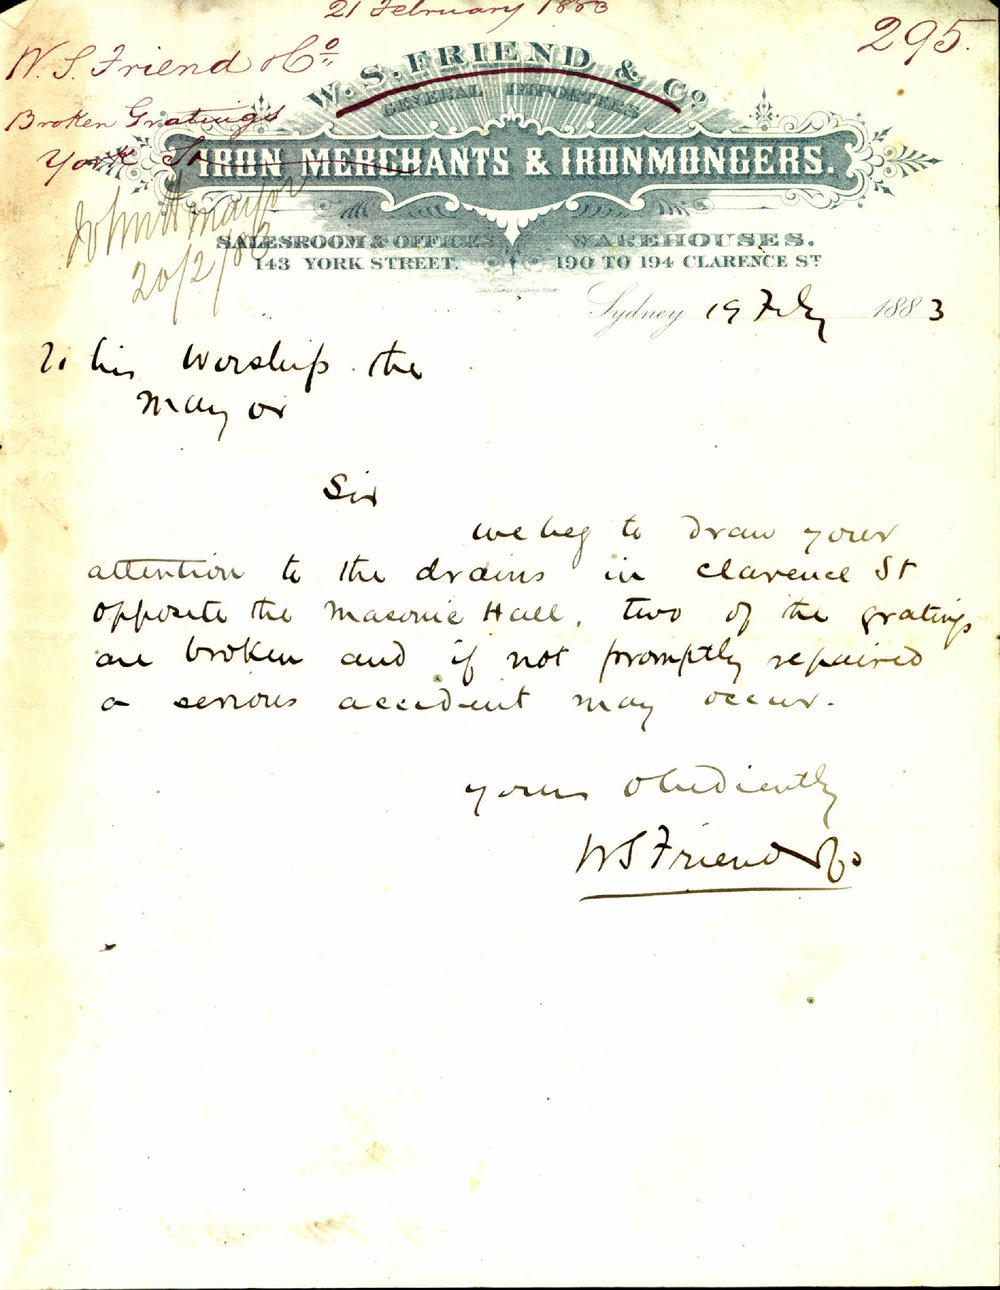 21 February 1883
295.
W. S. Friend & Co
Broken Gratings
York St
20/2/83
W. S. FRIEND & Co
GENERAL IMPORTERS
IRON MERCHANTS & IRONMONGERS.
SALESROOM & OFFICES
143 YORK STREET.
WAREHOUSES.
190 TO 194 CLARENCE ST
Sydney 19 Feby 1883
To his Worship the
Mayor
Sir
we beg to draw your
attention to the drains in Clarence St
opposite the Masonic Hall, two of the gratings
are broken and if not promptly repaired
a serious accident may occur.
yours obediently
W S Friend & Co